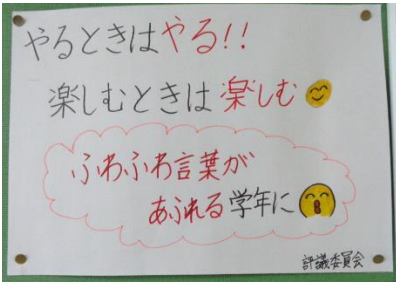 やるときはやる!!
楽しむときは楽しむ
ふわふわ言葉が
あふれる学年に
評議委員会